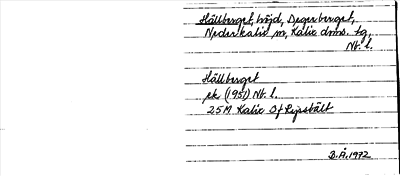 Hällberget, höjd, Degerberget,
Nederkalix sn, Kalix doms. tg,
Nb. l.
Hällberget
ek (1951) Nb. l.
25M Kalix Of
B.Å. 1972